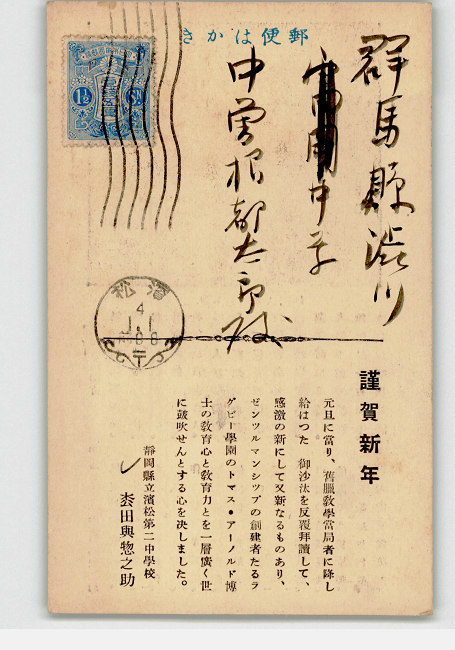 郵便はがき
1½
群馬縣渋川
中学
中曽根都太郎殿
濱松
4
1.1
謹賀新年
元旦に當り、舊臘敎學當局者に降し
給はつた 御沙汰を反覆拜讀して、
感激の新にして又新なるものあり、
ゼンツルマンシツプの創建者たるラ
グビー學園のトマス・アーノルド博
士の敎育心と敎育力とを一層廣く世
に鼓吹せんとする心を決しました。
靜岡縣立濱松第二中學校
枩田與惣之助